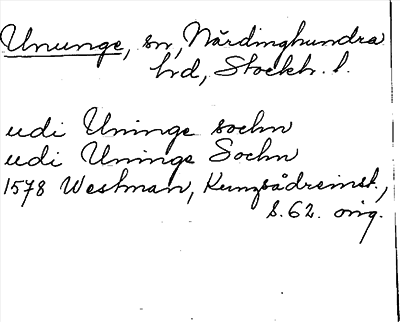 Ununge, sn, Närdinghundra
hd, Stockh. l.
udi Uninge sochn
udi Uninge Sochn
1578 Westman,
S. 62. orig.